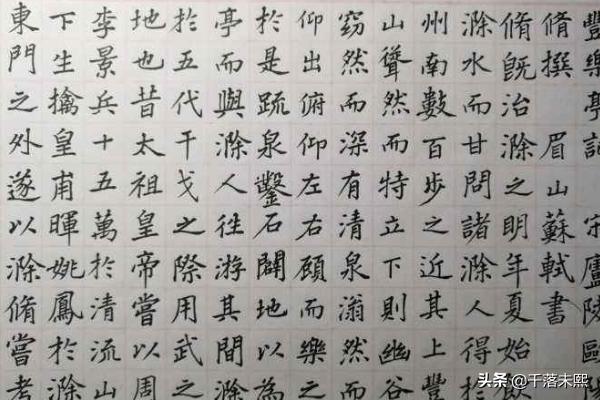 豐樂亭記 宋廬陵歐陽
脩撰 眉山蘇軾書
脩既治滁之明年夏始飲
滁水而甘問諸滁人得於
州南數百步之近其上豐
山聳然而特立下則幽谷
窈然而深有清泉滃然而
仰出俯仰左右顧而樂之
於是疏泉鑿石闢地以為
亭而與滁人徃游其間滁
於五代干戈之際用武之
地也昔太祖皇帝嘗以周
李景兵十五萬於清流山
下生擒皇甫暉姚鳳於滁
東門之外遂以滁脩嘗考
头条 @千落未熙